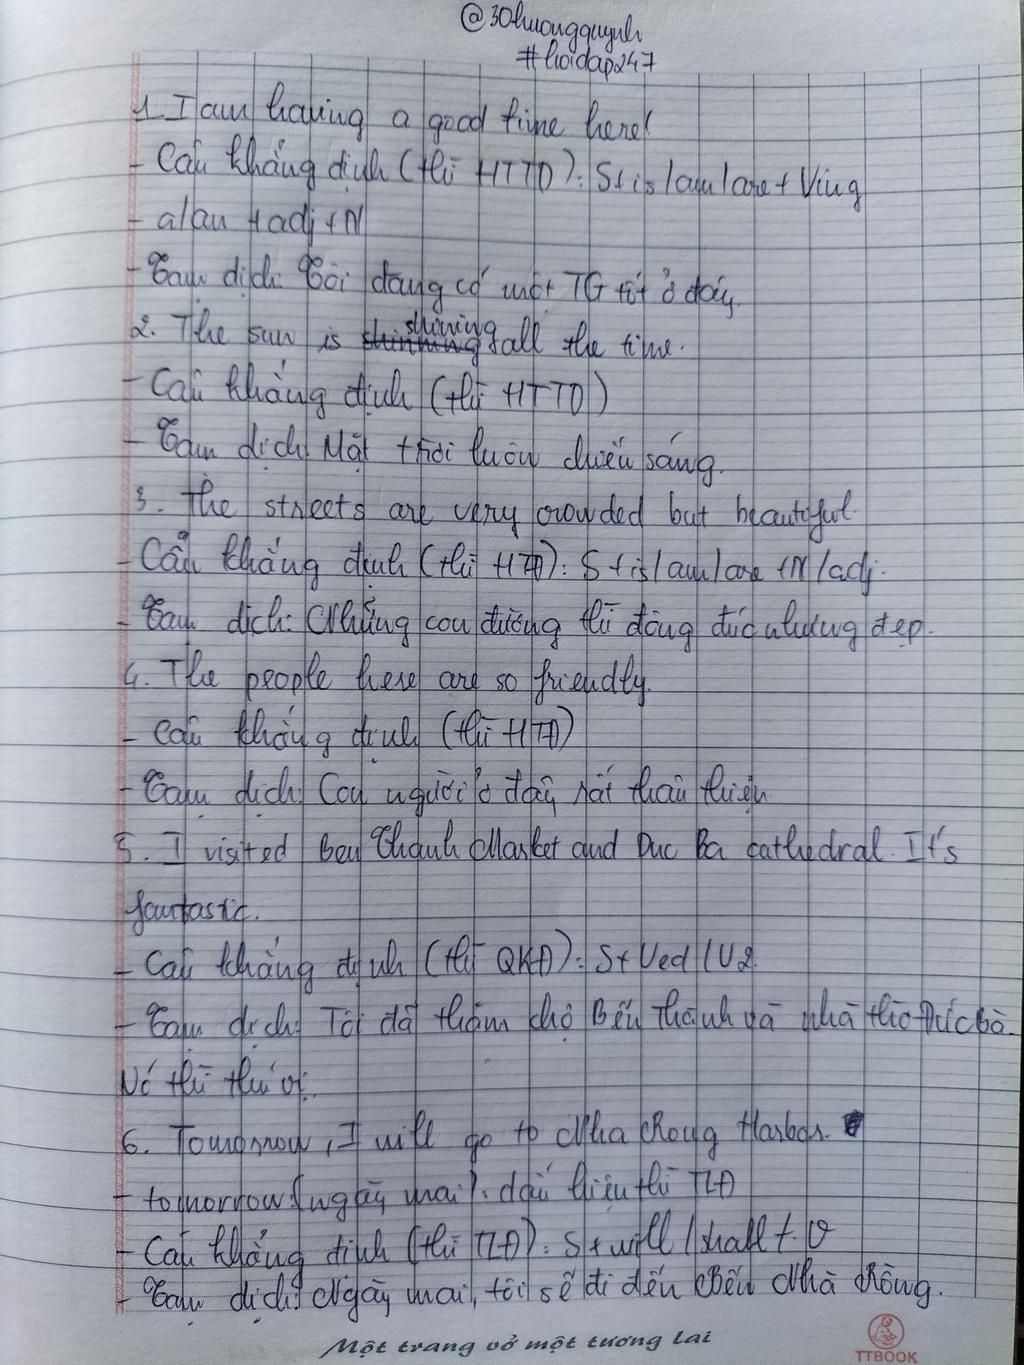 @30huongquynh
#hoidap247
1. I am having a good time here!
- Câu khẳng định (thì HTTD): S+is/am/are + Ving
- a/an + adj + N
- Tạm dịch: Tôi đang có một TG tốt ở đây.
2. The sun is shining all the time.
- Câu khẳng định (thì HTTD)
- Tạm dịch: Mặt trời luôn chiếu sáng.
3. The streets are very crowded but beautiful.
- Câu khẳng định (thì HTĐ): S + is/am/are + N/adj.
- Tạm dịch: Những con đường thì đông đúc nhưng đẹp.
4. The people here are so friendly.
- Câu khẳng định (thì HTĐ)
- Tạm dịch: Con người ở đây rất thân thiện.
5. I visited Ben Thanh Market and Duc Ba cathedral. It's
fantastic.
- Câu khẳng định (thì QKĐ): S + Ved/V2.
- Tạm dịch: Tôi đã thăm chợ Bến Thành và nhà thờ Đức bà.
Nó thì thú vị.
6. Tomorrow, I will go to Nha Rong Harbor.
- tomorrow (ngày mai): dấu hiệu thì TLĐ
- Câu khẳng định (thì TLĐ): S + will/shall + V
- Tạm dịch: Ngày mai, tôi sẽ đi đến Bến Nhà Rồng.
Một trang vở một tương lai
TTBOOK